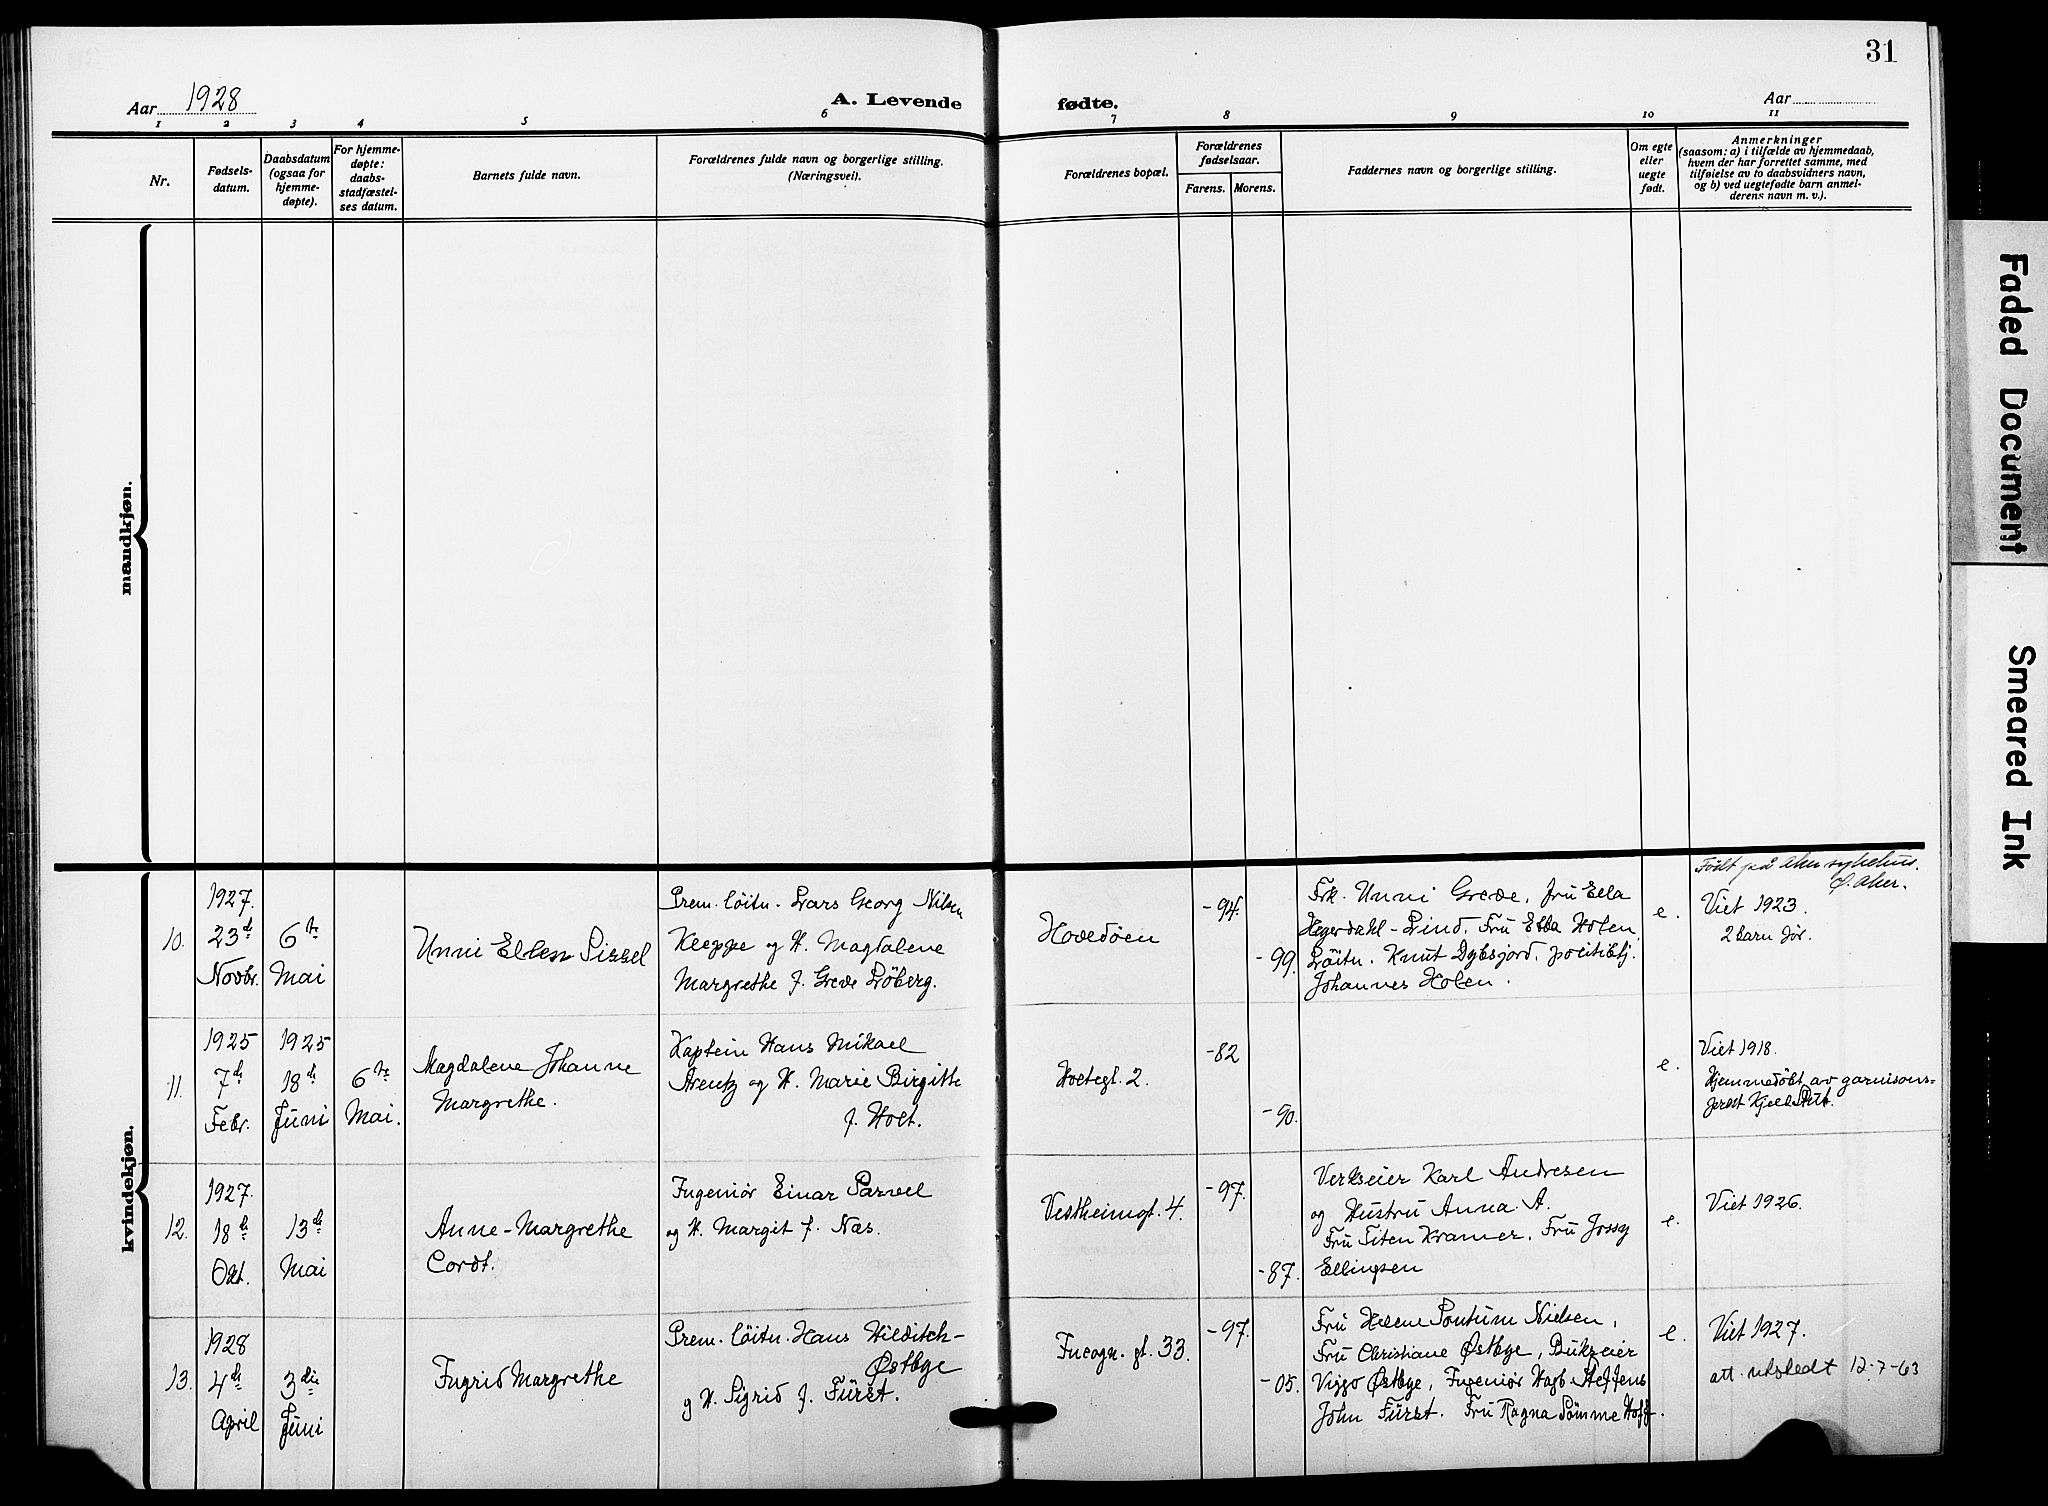 31
Aar 1928
A. Levende fødte.
Aar
1 2 3 4 5 6 7 8 9 10 11
Nr.
Fødsels-
datum.
Daabsdatum
(ogsaa for
hjemme-
døpte).
For hjemme-
døpte:
daabs-
stadfæstel-
ses datum.
Barnets fulde navn.
Forældrenes fulde navn og borgerlige stilling.
(Næringsvei).
Forældrenes bopæl.
Forældrenes
fødselsaar.
Farens. Morens.
Faddernes navn og borgerlige stilling.
Om egte
eller
uegte
født.
Anmerkninger
(saasom: a) i tilfælde av hjemmedaab,
hvem der har forrettet samme, med
tilføielse av to daabsvidners navn,
og b) ved uegtefødte barn anmel-
derens navn m. v.).
mandkjøn.
kvindekjøn.
10.
1927.
23d
Novbr.
6te
Mai
Unni Ellen Sissel
Prem. löitn. Lars Georg Nilsen
Kleppe og H. Magdalene
Margrethe f. Grede Löberg.
Hovedöen
-94.
-99.
Frk. Unni Grede, Fru Ella
Hegerdahl-Lind. Fru Ebba Holen,
Löitn. Knut Dybsjord, politibtj.
Johannes Holen.
e.
Født på Aker sykehus.
Ø. Aker.
Viet 1923.
2 barn før.
11.
1925
7d
Febr.
1925
18d
Juni
6te
Mai.
Magdalena Johanne
Margrethe.
Kaptein Hans Mikael
Arentz og H. Marie Birgitte
f. Holt.
Holtegt. 2.
-82
-90.
e.
Viet 1918.
Hjemmedöbt av garnisons-
prest Kjell
12.
1927.
18d
Okt.
13d
Mai
Anne-Margrethe
Cordt.
Ingeniör Einar Parvel
og H. Margit f. Næs.
Vestheimgt. 4.
-97.
-87.
Verkseier Karl Andresen
og Hustru Anna A.
Fru Titen Kramer. Fru Jossy
Ellingsen
e.
Viet 1926.
13.
1928
4d
April
3die
Juni
Ingrid Margrethe
Prem. löitn. Hans Hilditch-
Østbye
og H. Sigrid f. Fürst.
Incogn. gt. 33.
-97.
-05.
Fru Helene Pontum Nielsen,
Fru Christiane Østbye, Bukseier
Viggo Østbye, Ingeniör Hagb. Steffens
John Fürst. Fru Ragna Sömme Hoff.
e.
Viet 1927.
att. utstedt 12-7-63
Faded Document
Smeared Ink